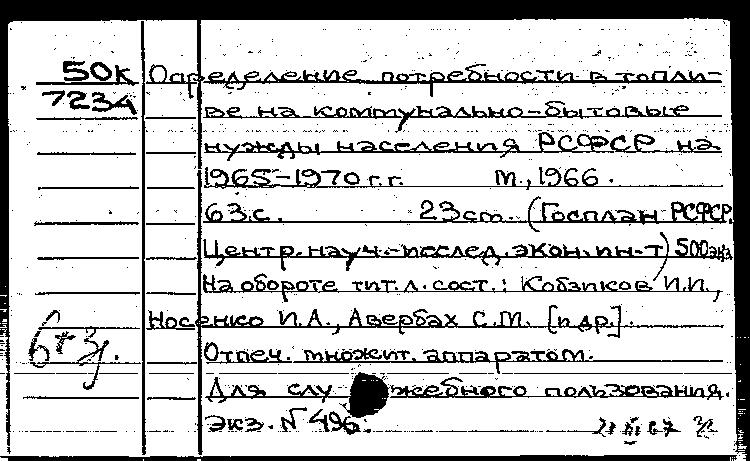 50к Определение потребности в топли-
7234 ве на коммунально-бытовые
нужды населения РСФСР на
1965-1970 г.г. М., 1966.
63 с. 23 см. (Госплан РСФСР.
Центр. науч.-исслед. экон. ин-т) 500 экз
На обороте тит. л. сост.: Кобзиков И.П.,
Носенко И.А., Авербах С.М. [и др.].
Отпеч. множит. аппаратом.
Для служебного пользования.
Экз. № 496.